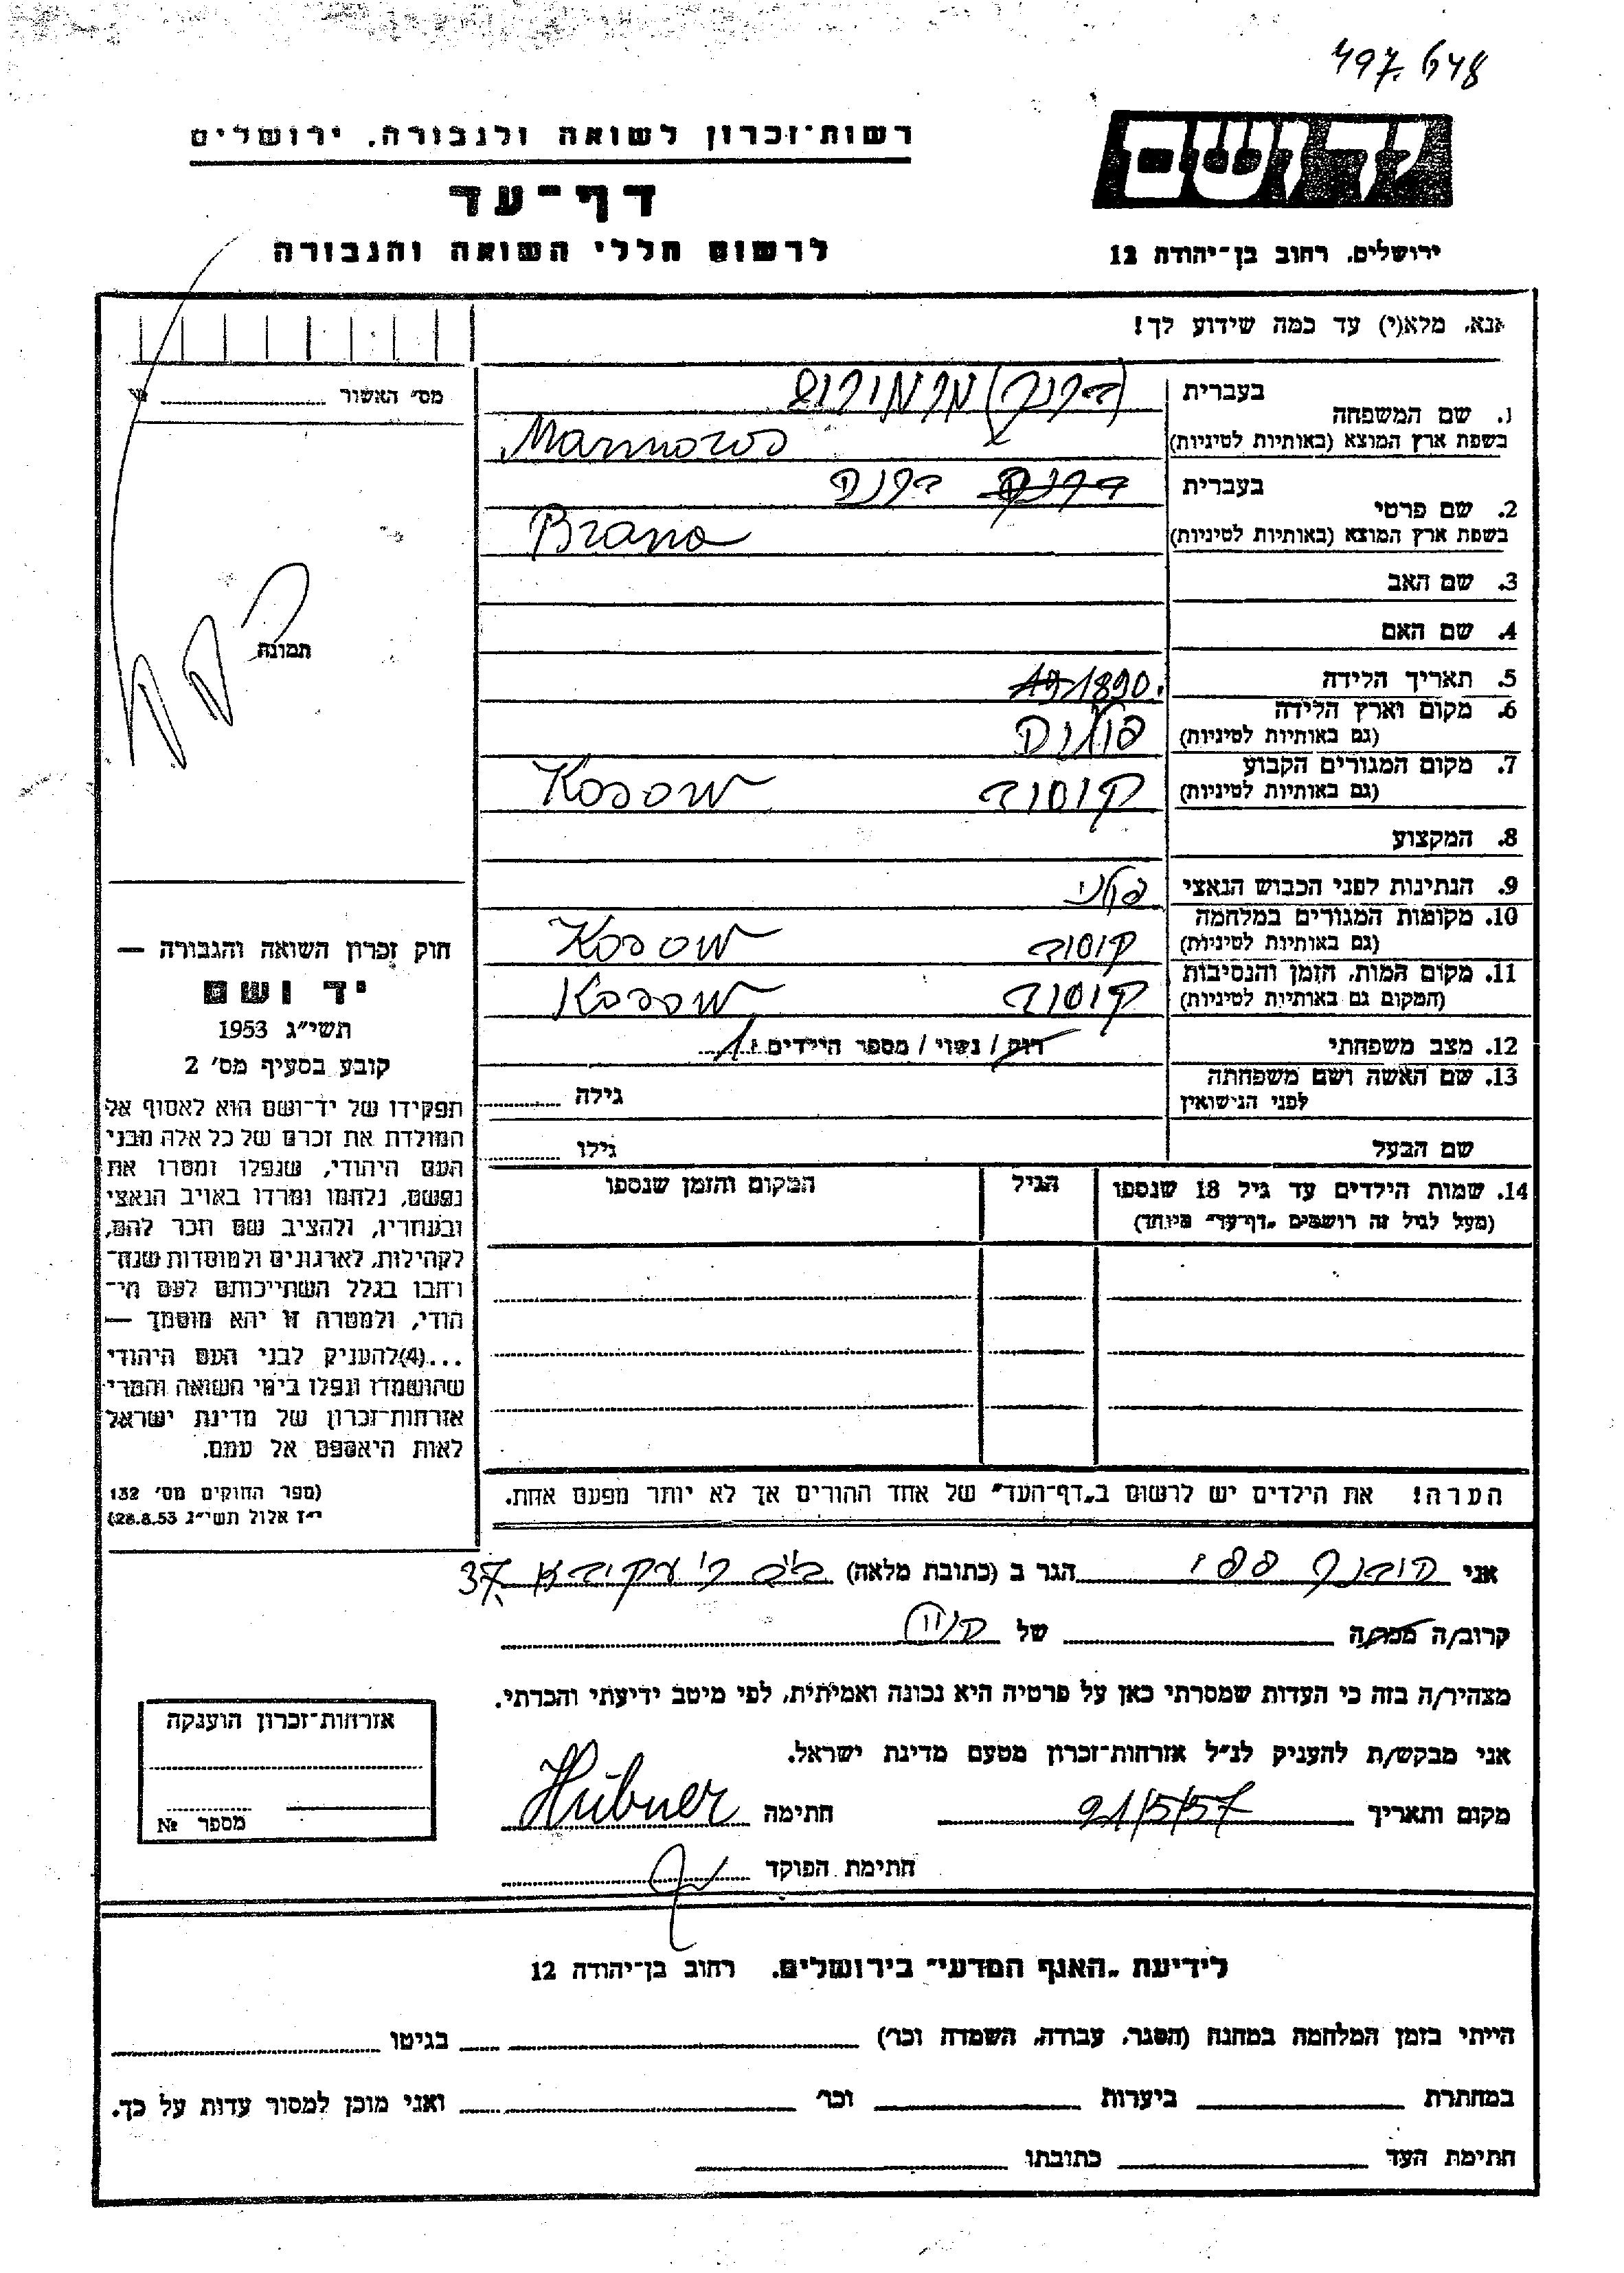 497.648
רשות־זכרון לשואה ולגבורה, ירושלים
דף־עד
לרשום חללי השואה והגבורה
ידושם
ירושלים, רחוב בן־יהודה 12
אנא, מלא(י) עד כמה שידוע לך!
מס׳ האשור
בעברית
מרמורוש
1. שם המשפחה
בשפת ארץ המוצא (באותיות לטיניות)
Marmoros
בעברית
ברנה
2. שם פרטי
בשפת ארץ המוצא (באותיות לטיניות)
Brana
3. שם האב
4. שם האם
תמונה
5. תאריך הלידה 1890.
6. מקום וארץ הלידה
(גם באותיות לטיניות)
7. מקום המגורים הקבוע
(גם באותיות לטיניות) קוסוב Kosow
8. המקצוע
9. הנתינות לפני הכבוש הנאצי פולני
10. מקומות המגורים במלחמה
(גם באותיות לטיניות) קוסוב Kosow
11. מקום המות, הזמן והנסיבות
(המקום גם באותיות לטיניות) קוסוב Kosow
12. מצב משפחתי רווק / נשוי / מספר הילדים 1
13. שם האשה ושם משפחתה
לפני הנישואין
גילה
שם הבעל
גילו
14. שמות הילדים עד גיל 18 שנספו
(מעל לגיל זה רושמים „דף־עד״ מיוחד)
הגיל
המקום והזמן שנספו
חוק זכרון השואה והגבורה —
יד ושם
תשי״ג 1953
קובע בסעיף מס׳ 2
תפקידו של יד־ושם הוא לאסוף אל
המולדת את זכרם של כל אלה מבני
העם היהודי, שנפלו ומסרו את
נפשם, נלחמו ומרדו באויב הנאצי
ובעוזריו, ולהציב שם וזכר להם,
לקהילות, לארגונים ולמוסדות שנח־
רבו בגלל השתייכותם לעם הי־
הודי, ולמטרה זו יהא מוסמך —
...(4)להעניק לבני העם היהודי
שהושמדו ונפלו בימי השואה והמרי
אזרחות־זכרון של מדינת ישראל
לאות היאספם אל עמם.
(ספר החוקים מס׳ 132
י״ז אלול תשי״ג 28.8.53)
הערה! את הילדים יש לרשום ב„דף־העד״ של אחד ההורים אך לא יותר מפעם אחת.
אני הובנר הגר ב (כתובת מלאה) ב״ב ר׳ עקיבא 37
קרוב/ה מכר/ה של
מצהיר/ה בזה כי העדות שמסרתי כאן על פרטיה היא נכונה ואמיתית, לפי מיטב ידיעתי והכרתי.
אני מבקש/ת להעניק לנ״ל אזרחות־זכרון מטעם מדינת ישראל.
מקום ותאריך 21/5/57 חתימה Hübner
חתימת הפוקד
אזרחות־זכרון הוענקה
מספר №
לידיעת „האגף המדעי״ בירושלים, רחוב בן־יהודה 12
הייתי בזמן המלחמה במחנה (הסגר, עבודה, השמדה וכו׳) בגיטו
במחתרת ביערות וכו׳ ואני מוכן למסור עדות על כך.
חתימת העד כתובתו